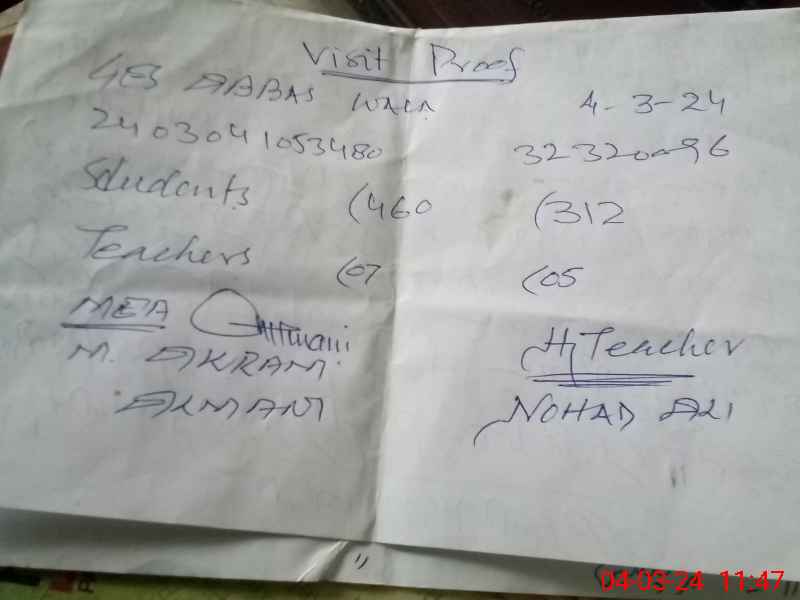 Visit Proof
GES ABBAS WALA 4-3-24
2403041053480 32320096
Students (460 (312
Teachers (07 (05
MEA
M. AKRAM H/Teacher
NOHAD ALI
04-03-24 11:47